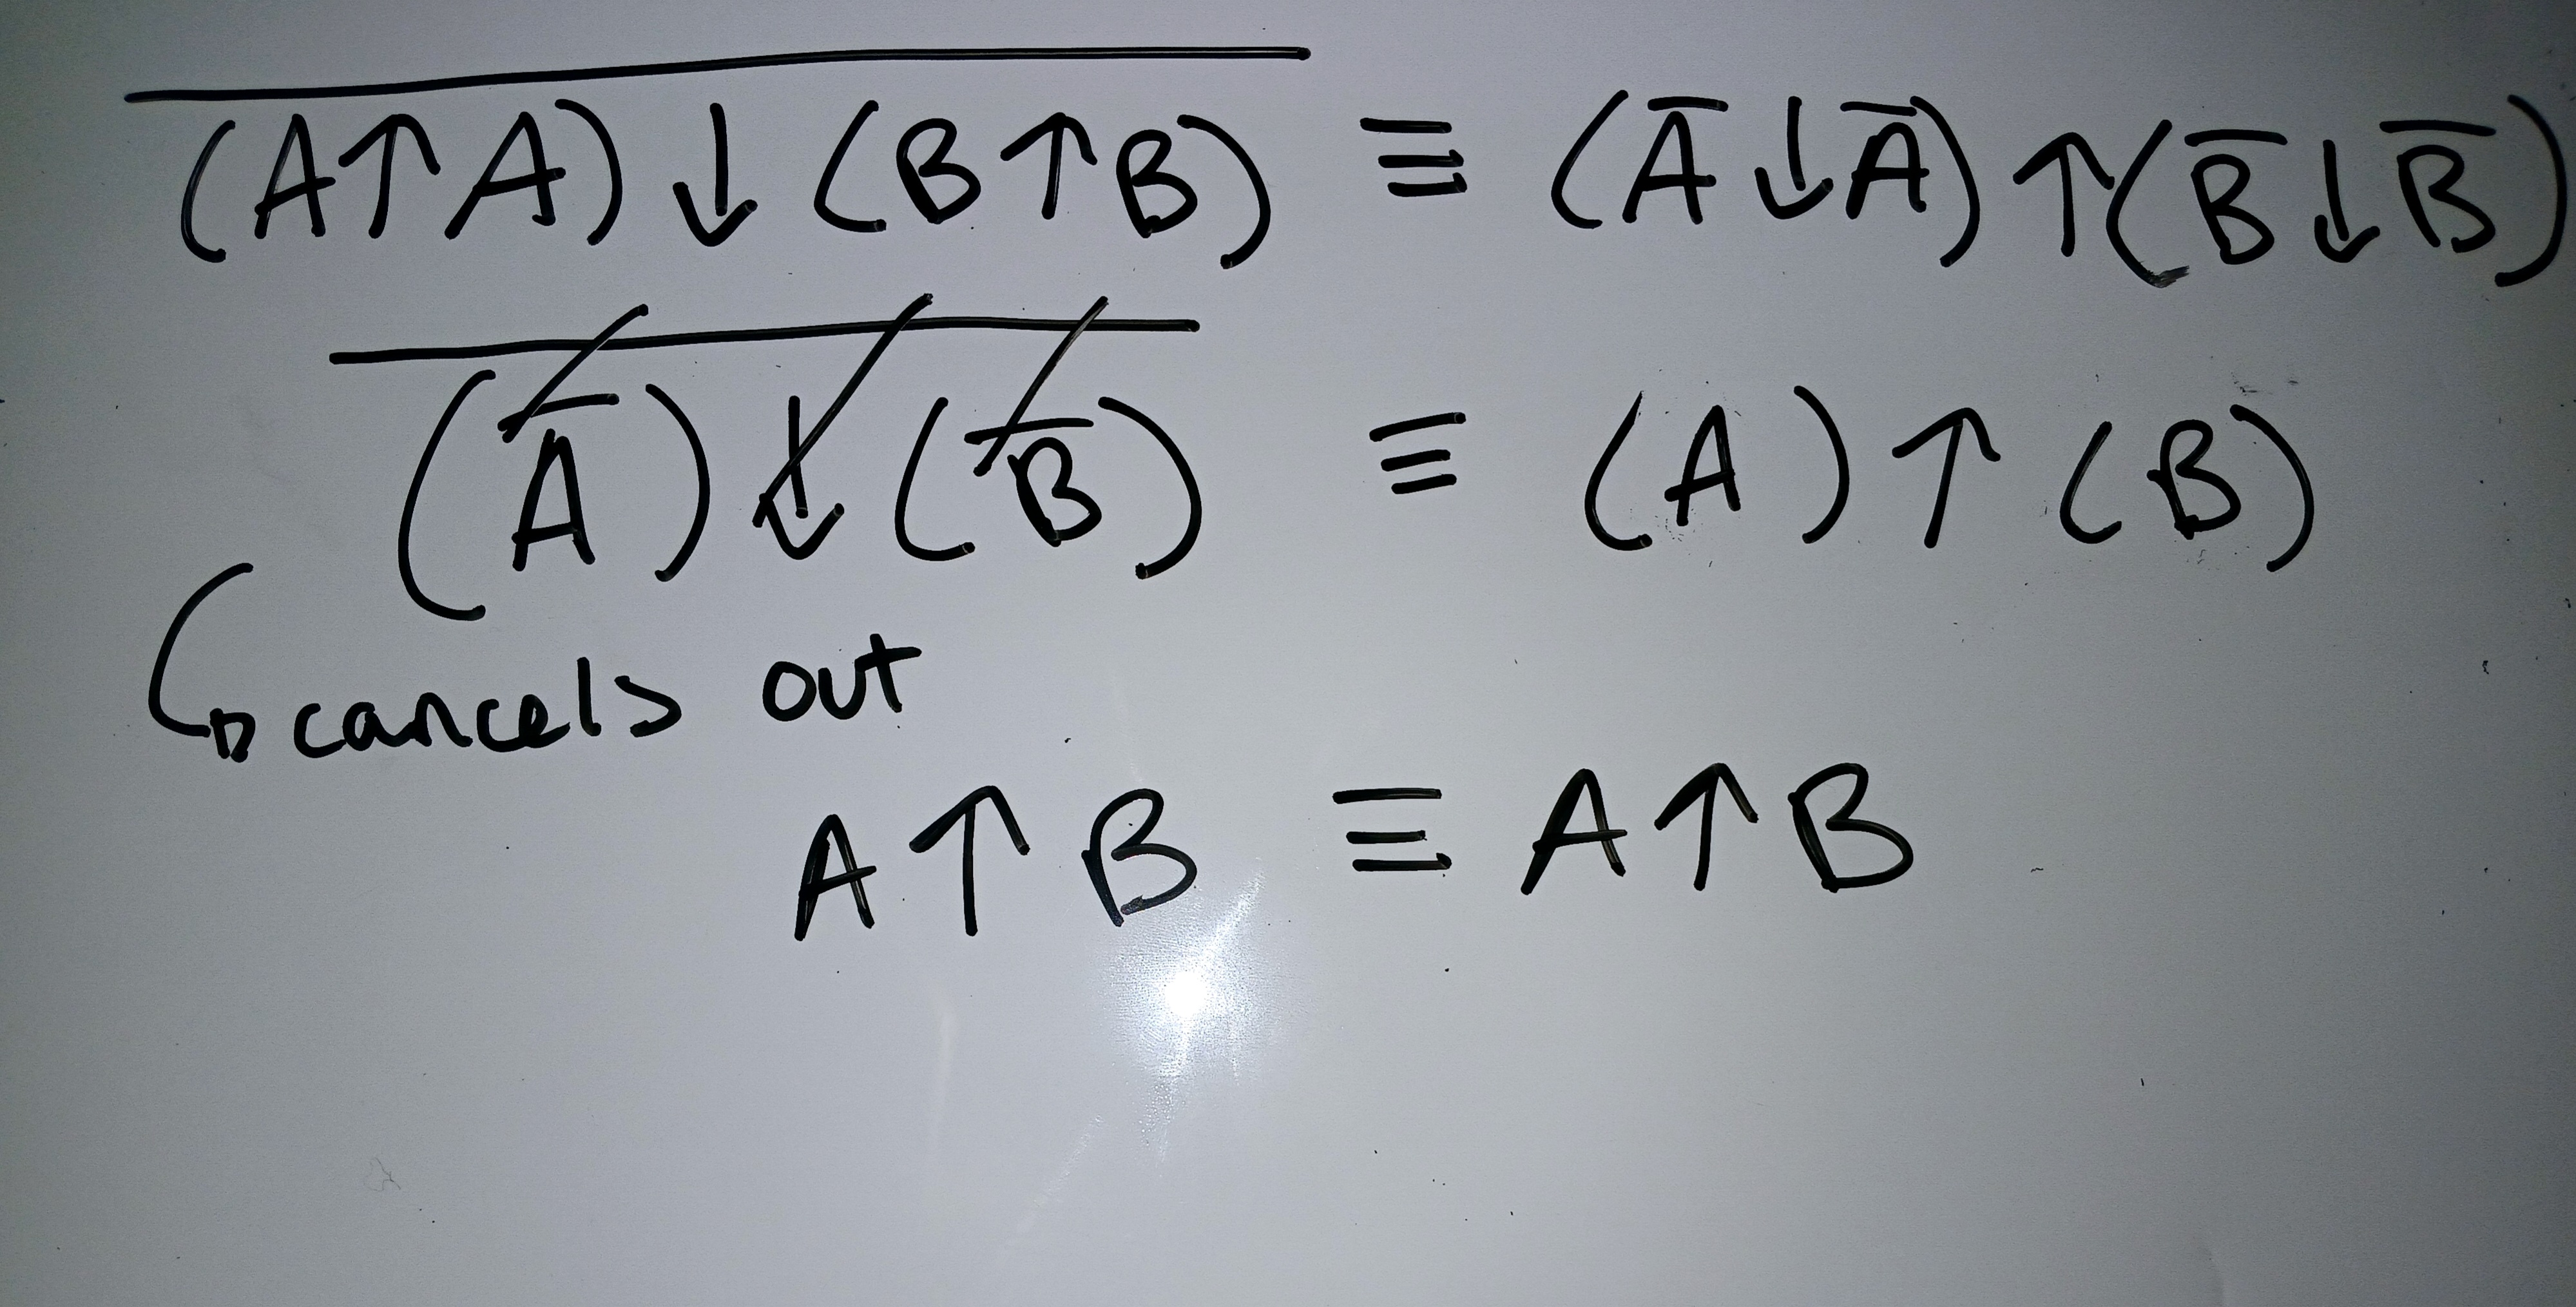 (A↑A)↓(B↑B) ≡ (A̅↓A̅)↑(B̅↓B̅)
(A̅)↓(B̅) ≡ (A)↑(B)
cancels out
A↑B ≡ A↑B